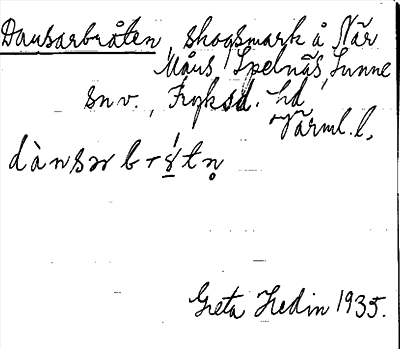 Dansarbråten, skogsmark å När
Måns, Spelnäs, Sunne
snv., Fryksd. hd,
Värml. l.
Greta Hedin 1935.